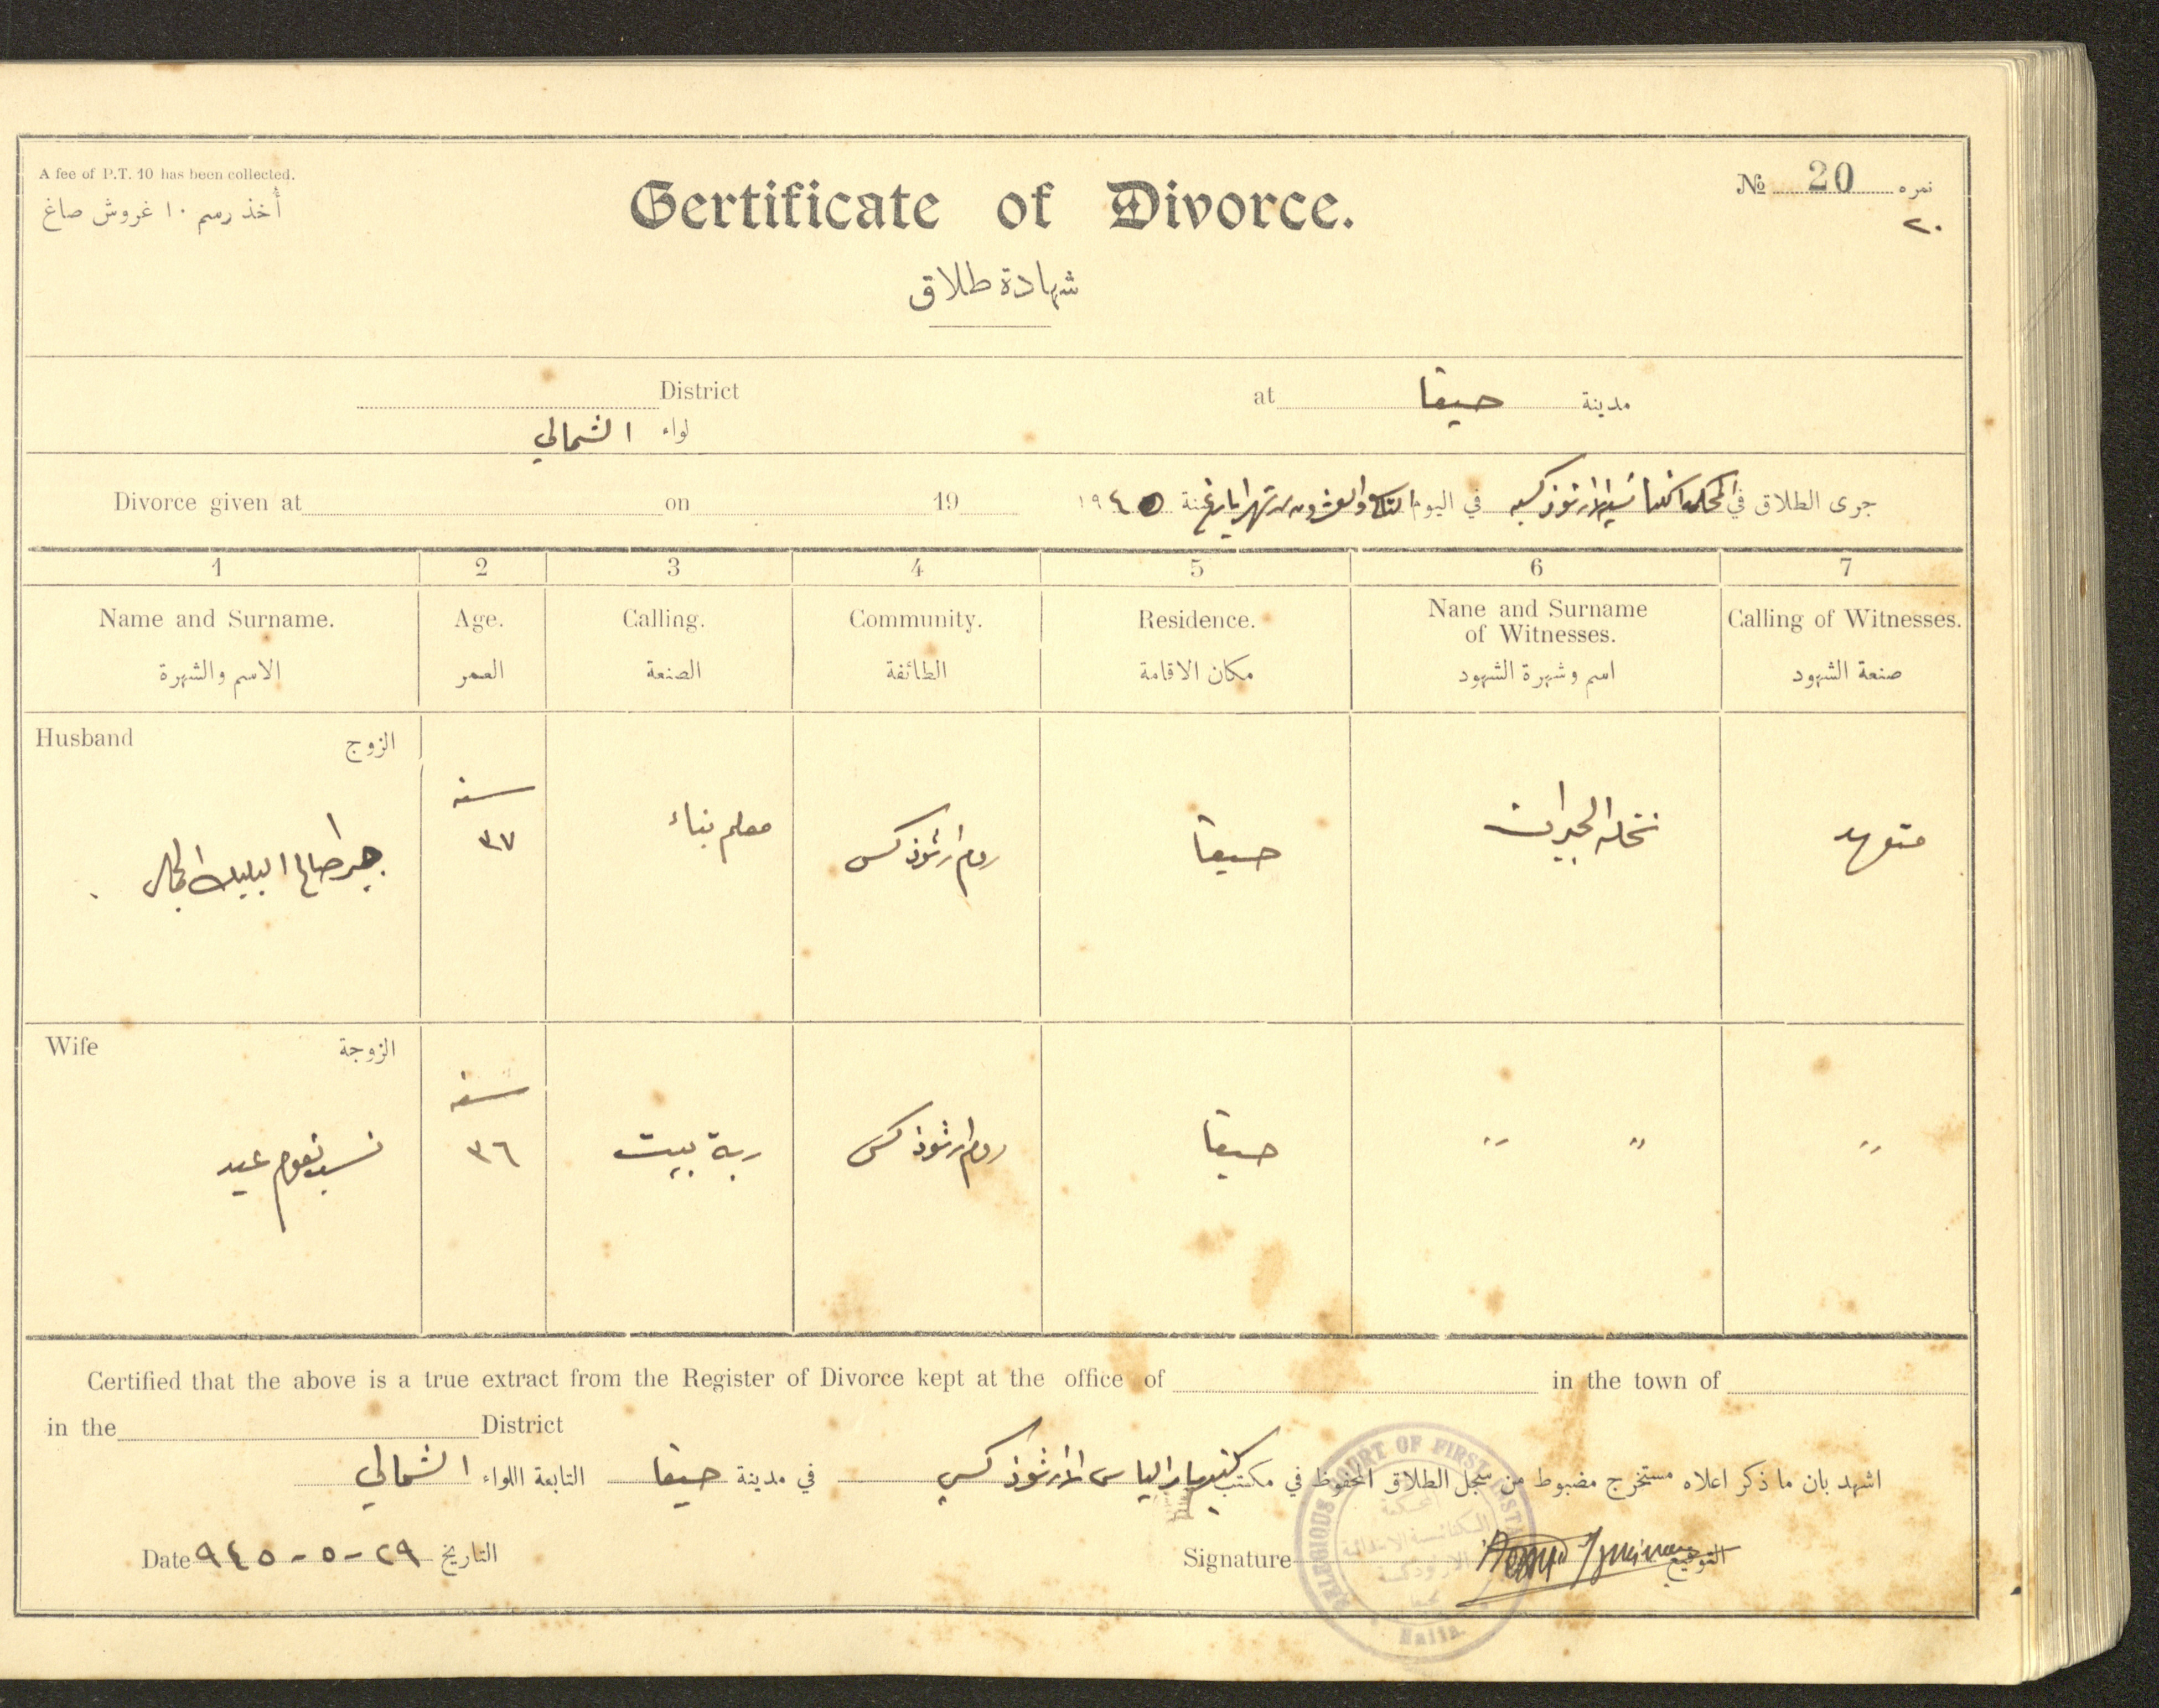 A fee of P.T. 10 has been collected.
أخذ رسم ١٠ غروش صاغ
Certificate of Divorce.
شهادة طلاق
№ 20 نمره
٢٠
at حيفا مدينة
District
لواء الشمالي
Divorce given at on 19
جرى الطلاق في المحكمة الكنائسية الارثوذكسية في اليوم التاسع والعشرون من شهر ايار سنة ١٩٤٥
1 2 3 4 5 6 7
Name and Surname. Age. Calling. Community. Residence. Nane and Surname of Witnesses. Calling of Witnesses.
الاسم والشهرة العمر الصنعة الطائفة مكان الاقامة اسم وشهرة الشهود صنعة الشهود
Husband الزوج
سنه
٣٧
معلم بناء
روم ارثوذكس
حيفا
نخله الجبران
متعهد
Wife الزوجة
نعوم عيد
سنه
٣٦
ربة بيت
روم ارثوذكس
حيفا
" "
"
Certified that the above is a true extract from the Register of Divorce kept at the office of in the town of
in the District
اشهد بان ما ذكر اعلاه مستخرج مضبوط من سجل الطلاق المحفوظ في مكتب مار الياس الارثوذكسي في مدينة حيفا التابعة اللواء الشمالي
Date ٩٤٥-٥-٢٩ التاريخ
Signature التوقيع
RELEGIOUS COURT OF FIRST INSTA
المحكمة
الكنائسية الابتدائية
الارثوذكسية
بحيفا
Haifa.